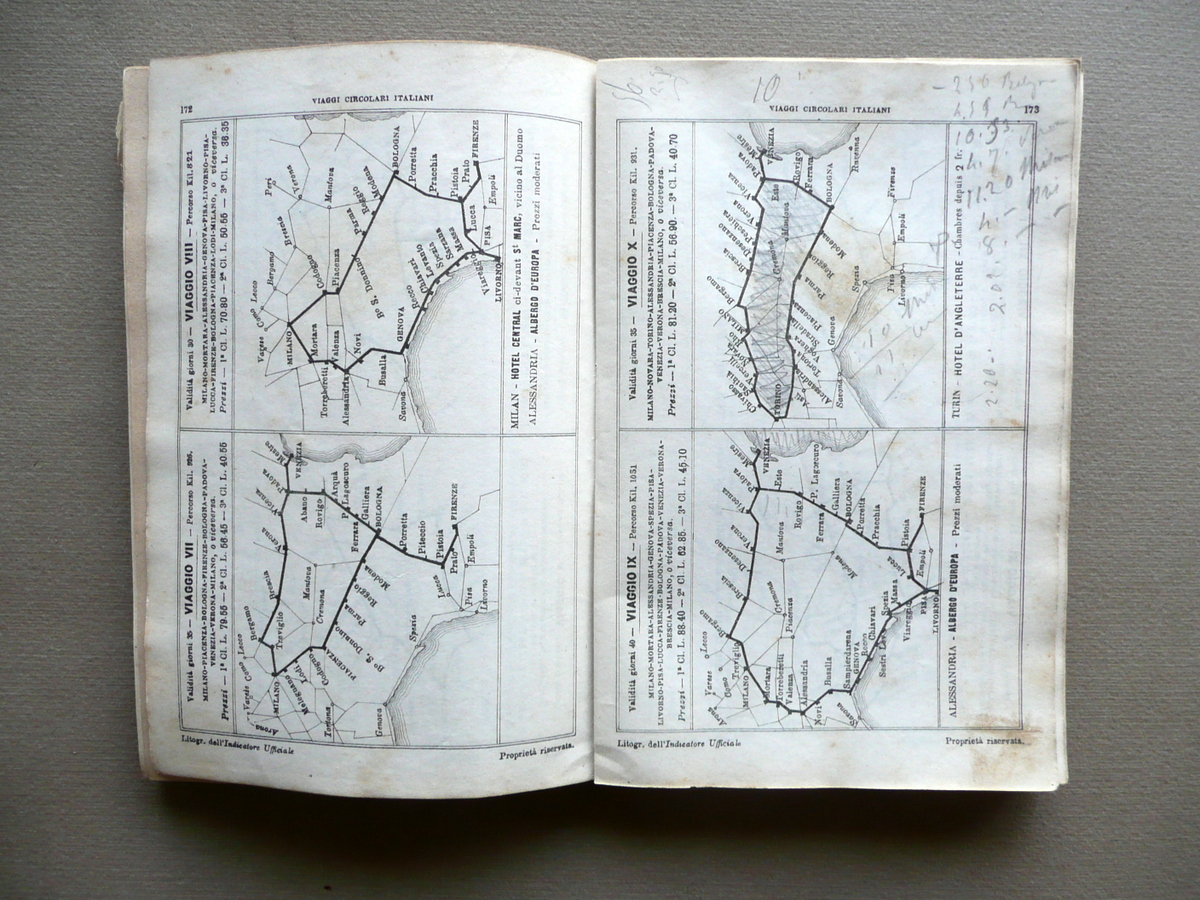 172
VIAGGI CIRCOLARI ITALIANI
Validità giorni 30 — VIAGGIO VIII — Percorso Kil. 821
MILANO-MORTARA-ALESSANDRIA-GENOVA-PISA-LIVORNO-PISA-
LUCCA-FIRENZE-BOLOGNA-PIACENZA-LODI-MILANO, o viceversa.
Prezzi — 1ª Cl. L. 70.80 — 2ª Cl. L. 50.55 — 3ª Cl. L. 36.35
Peri
Verona
Mantova
Brescia
Bergamo
Lecco
Como
Varese
MILANO
Codogno
Piacenza
Bo S. Donnino
Parma
Reggio
Modena
BOLOGNA
Porretta
Pracchia
Pistoia
Prato
FIRENZE
Empoli
Lucca
PISA
LIVORNO
Viareggio
Massa
Sarzana
Spezia
Levanto
Chiavari
Recco
GENOVA
Savona
Busalla
Novi
Alessandria
Valenza
Torreberetti
Mortara
MILAN - HOTEL CENTRAL ci-devant St MARC, vicino al Duomo
ALESSANDRIA - ALBERGO D'EUROPA - Prezzi moderati
Validità giorni 35 — VIAGGIO VII — Percorso Kil.
MILANO-PIACENZA-BOLOGNA-FIRENZE-BOLOGNA-PADOVA-
VENEZIA-VERONA-MILANO, o viceversa.
Prezzi — 1ª Cl. L. 79.55 — 2ª Cl. L. 56.45 — 3ª Cl. L. 40.55
Mestre
VENEZIA
Padova
Vicenza
Verona
Brescia
Bergamo
Treviglio
Lecco
Como
Varese
Arona
MILANO
Melegnano
Lodi
Codogno
PIACENZA
Cremona
Mantova
Bo S. Donnino
Parma
Reggio
Modena
BOLOGNA
Ferrara
Galliera
P. Lagoscuro
Arquà
Rovigo
Abano
Porretta
Piteccio
Pistoia
Prato
FIRENZE
Empoli
Lucca
Pisa
Livorno
Spezia
Genova
Tortona
Litogr. dell'Indicatore Ufficiale
Proprietà riservata.
10
VIAGGI CIRCOLARI ITALIANI
173
Validità giorni 35 — VIAGGIO X — Percorso Kil. 931.
MILANO-NOVARA-TORINO-ALESSANDRIA-PIACENZA-BOLOGNA-PADOVA-
VENEZIA-VERONA-BRESCIA-MILANO, o viceversa.
Prezzi — 1ª Cl. L. 81.20 — 2ª Cl. L. 56.90. — 3ª Cl. L. 40.70
Mestre
VENEZIA
Padova
Vicenza
Verona
Peschiera
Desenzano
Brescia
Bergamo
MILANO
Vercelli
Santhià
Chivasso
TORINO
Alessandria
Tortona
Voghera
Stradella
Piacenza
Cremona
Mantova
Este
Rovigo
Ferrara
BOLOGNA
Modena
Reggio
Parma
Ravenna
Firenze
Empoli
Pisa
Livorno
Spezia
Genova
Savona
TURIN - HOTEL D'ANGLETERRE - Chambres depuis 2 fr.
Validità giorni 40 — VIAGGIO IX — Percorso Kil. 1051
MILANO-MORTARA-ALESSANDRIA-GENOVA-SPEZIA-PISA-
LIVORNO-PISA-LUCCA-FIRENZE-BOLOGNA-PADOVA-VENEZIA-VERONA-
BRESCIA-MILANO, o viceversa.
Prezzi — 1ª Cl. L. 88.40 — 2ª Cl. L. 62.85. — 3ª Cl. L. 45.10
Mestre
VENEZIA
Padova
Vicenza
Verona
Desenzano
Brescia
Bergamo
Treviglio
Lecco
Como
Varese
Arona
MILANO
Mortara
Torreberetti
Valenza
Alessandria
Novi
Busalla
Sampierdarena
GENOVA
Savona
Recco
Chiavari
Sestri Lev.
Spezia
Massa
Viareggio
PISA
LIVORNO
Lucca
Empoli
FIRENZE
Pistoia
Pracchia
Porretta
BOLOGNA
Galliera
P. Lagoscuro
Ferrara
Rovigo
Este
Modena
Mantova
Cremona
Piacenza
ALESSANDRIA - ALBERGO D'EUROPA - Prezzi moderati
Litogr. dell'Indicatore Ufficiale
Proprietà riservata.